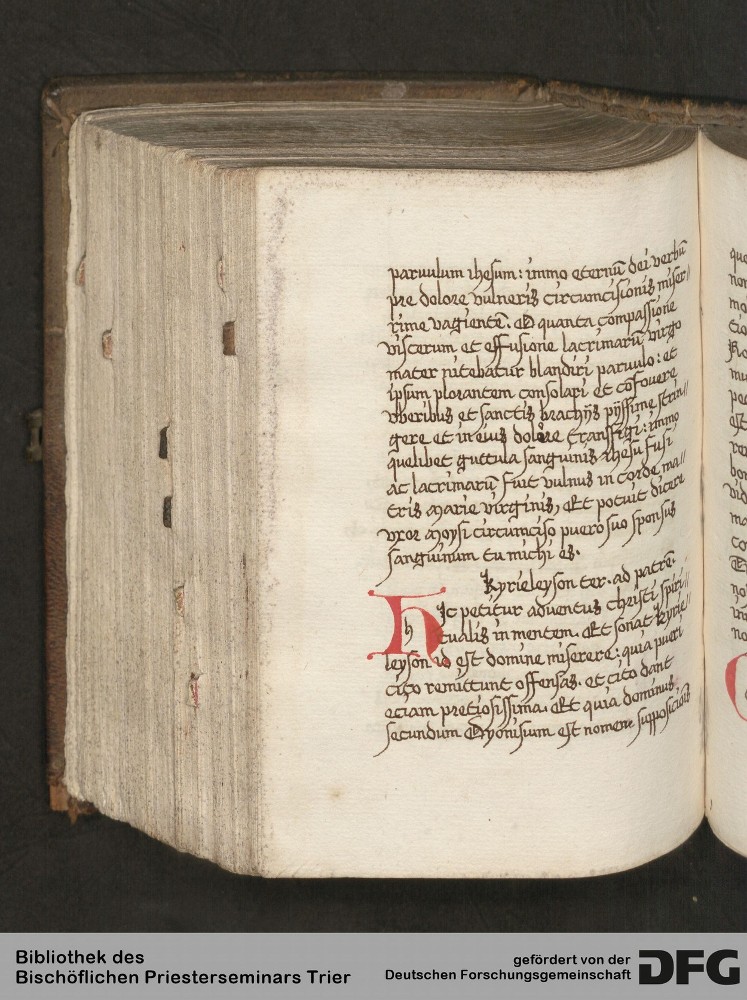 paruulum ihesum: immo eternū dei verbū
pre dolore vulneris circumcisionis miser//
rime vagientē. O quanta compassione
viscerum et effusione lacrimarū virgo
mater nitebatur blandiri paruulo: et
ipsum plorantem consolari et cōfouere
vberibus et sanctis brachijs pijssime strin//
gere et in eius dolore transfigi: immo
quelibet guttula sanguinis ihesu fusi
ac lacrimarū fuit vulnus in corde ma//
tris marie virginis, Et potuit dicere
vxor moysi circumciso puero suo sponsus
sanguinum tu michi es.
Kyrieleyson ter. ad patrē.
Hic petitur aduentus christi spiri//
tualis in mentem. Et sonat kyrie//
leyson id est domine miserere: quia pueri
cito remittunt offensas. et cito dant
eciam pretiosissima. Et quia dominus
secundum Dyonisium est nomen supposiciōis
que
non
mo
tio
mu
pec
est
re
bon
vid
ma
co
no
no
Bibliothek des
Bischöflichen Priesterseminars Trier
gefördert von der
Deutschen Forschungsgemeinschaft
DFG